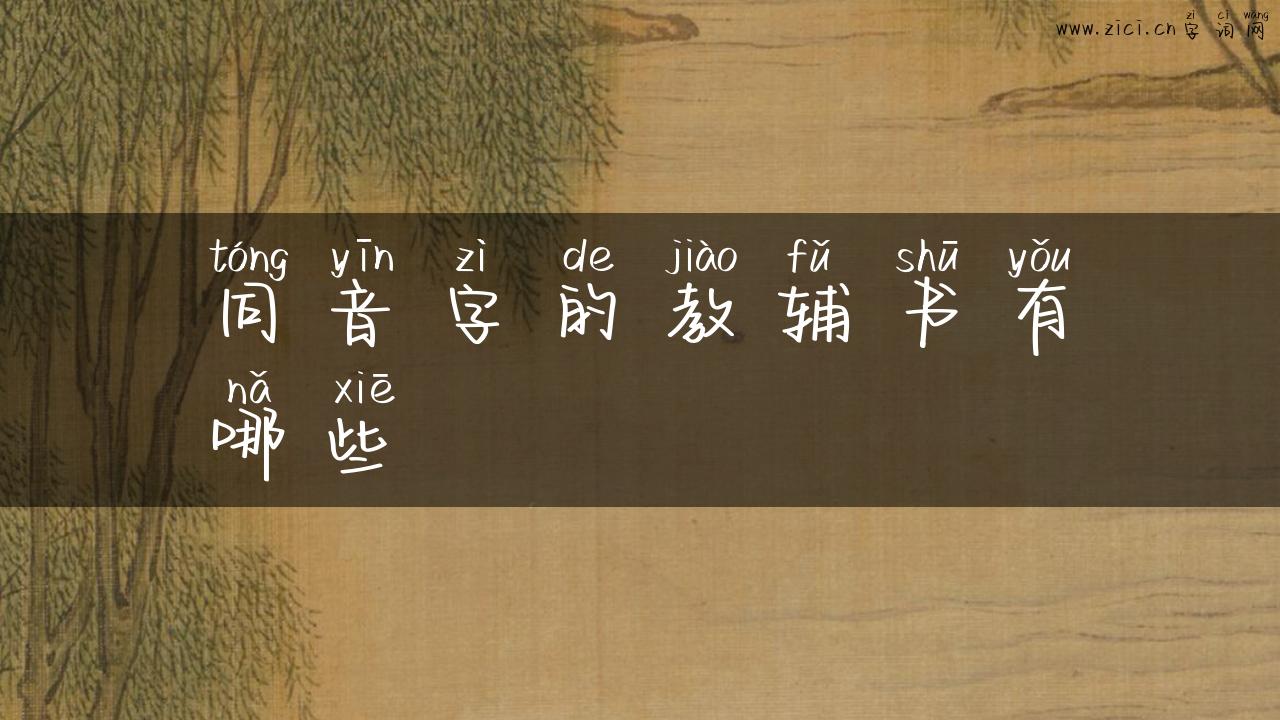 zì cí wǎng
www.zici.cn 字 词 网
tóng yīn zì de jiào fǔ shū yǒu
同 音 字 的 教 辅 书 有
nǎ xiē
哪 些